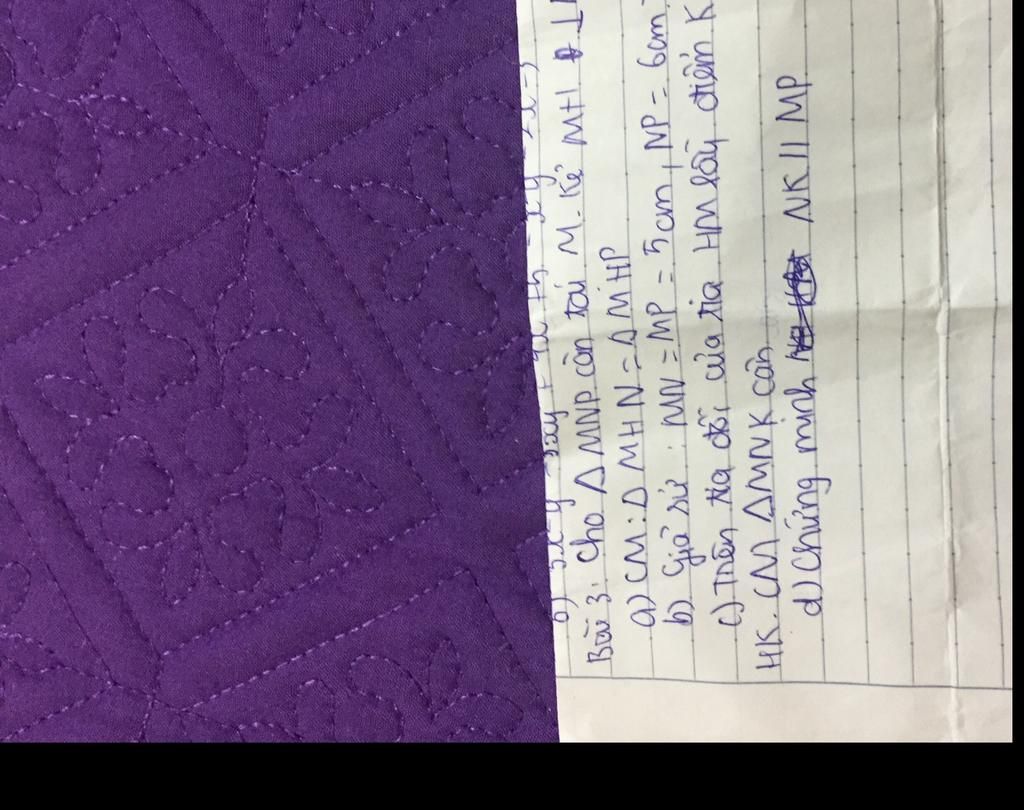 b) 5x²y - 5xy +
Bài 3: Cho Δ MNP cân tại M. Kẻ MH ⊥
a) CM: Δ MHN = Δ MHP
b) Giả sử: MN = MP = 5cm, NP = 6cm.
c) Trên tia đối của tia HM lấy điểm K
HK. CM ΔMNK cân
d) Chứng minh NK // MP